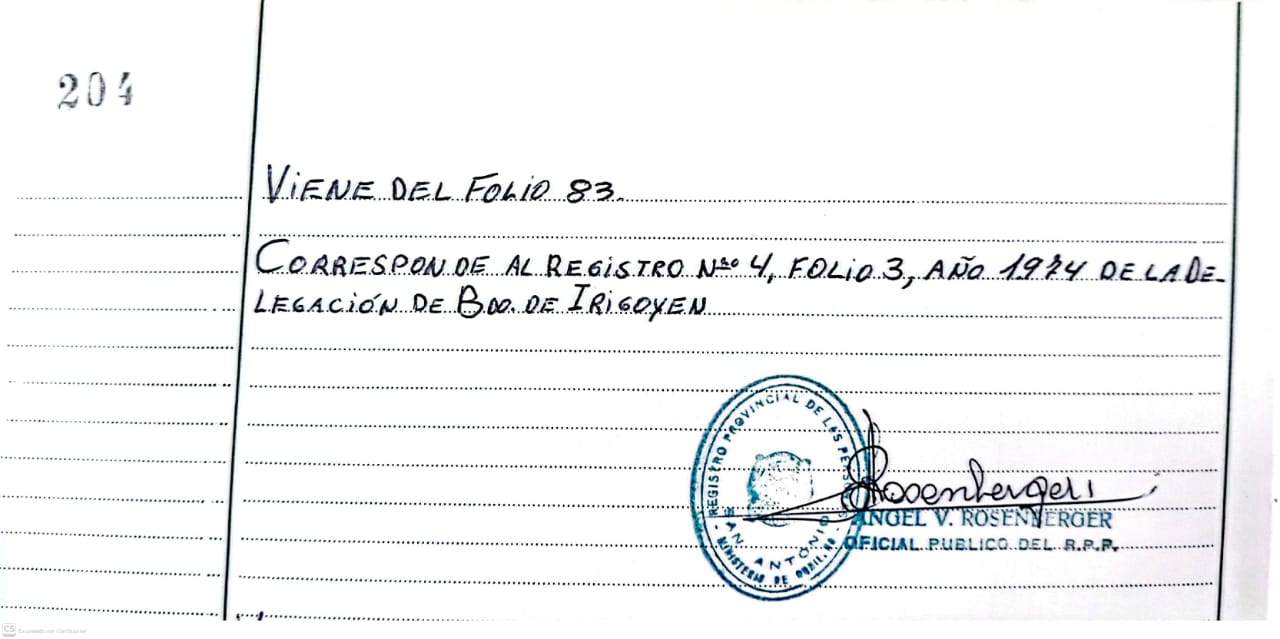 204
VIENE DEL FOLIO 83.
CORRESPONDE AL REGISTRO Nro 4, FOLIO 3, AÑO 1974 DE LA DE-
LEGACIÓN DE Bdo. DE IRIGOYEN
REGISTRO PROVINCIAL DE LAS
SAN ANTONIO
MINISTERIO DE
Rosenberger
ANGEL V. ROSENBERGER
OFICIAL PUBLICO DEL R.P.P.
CS Escaneado con CamScanner